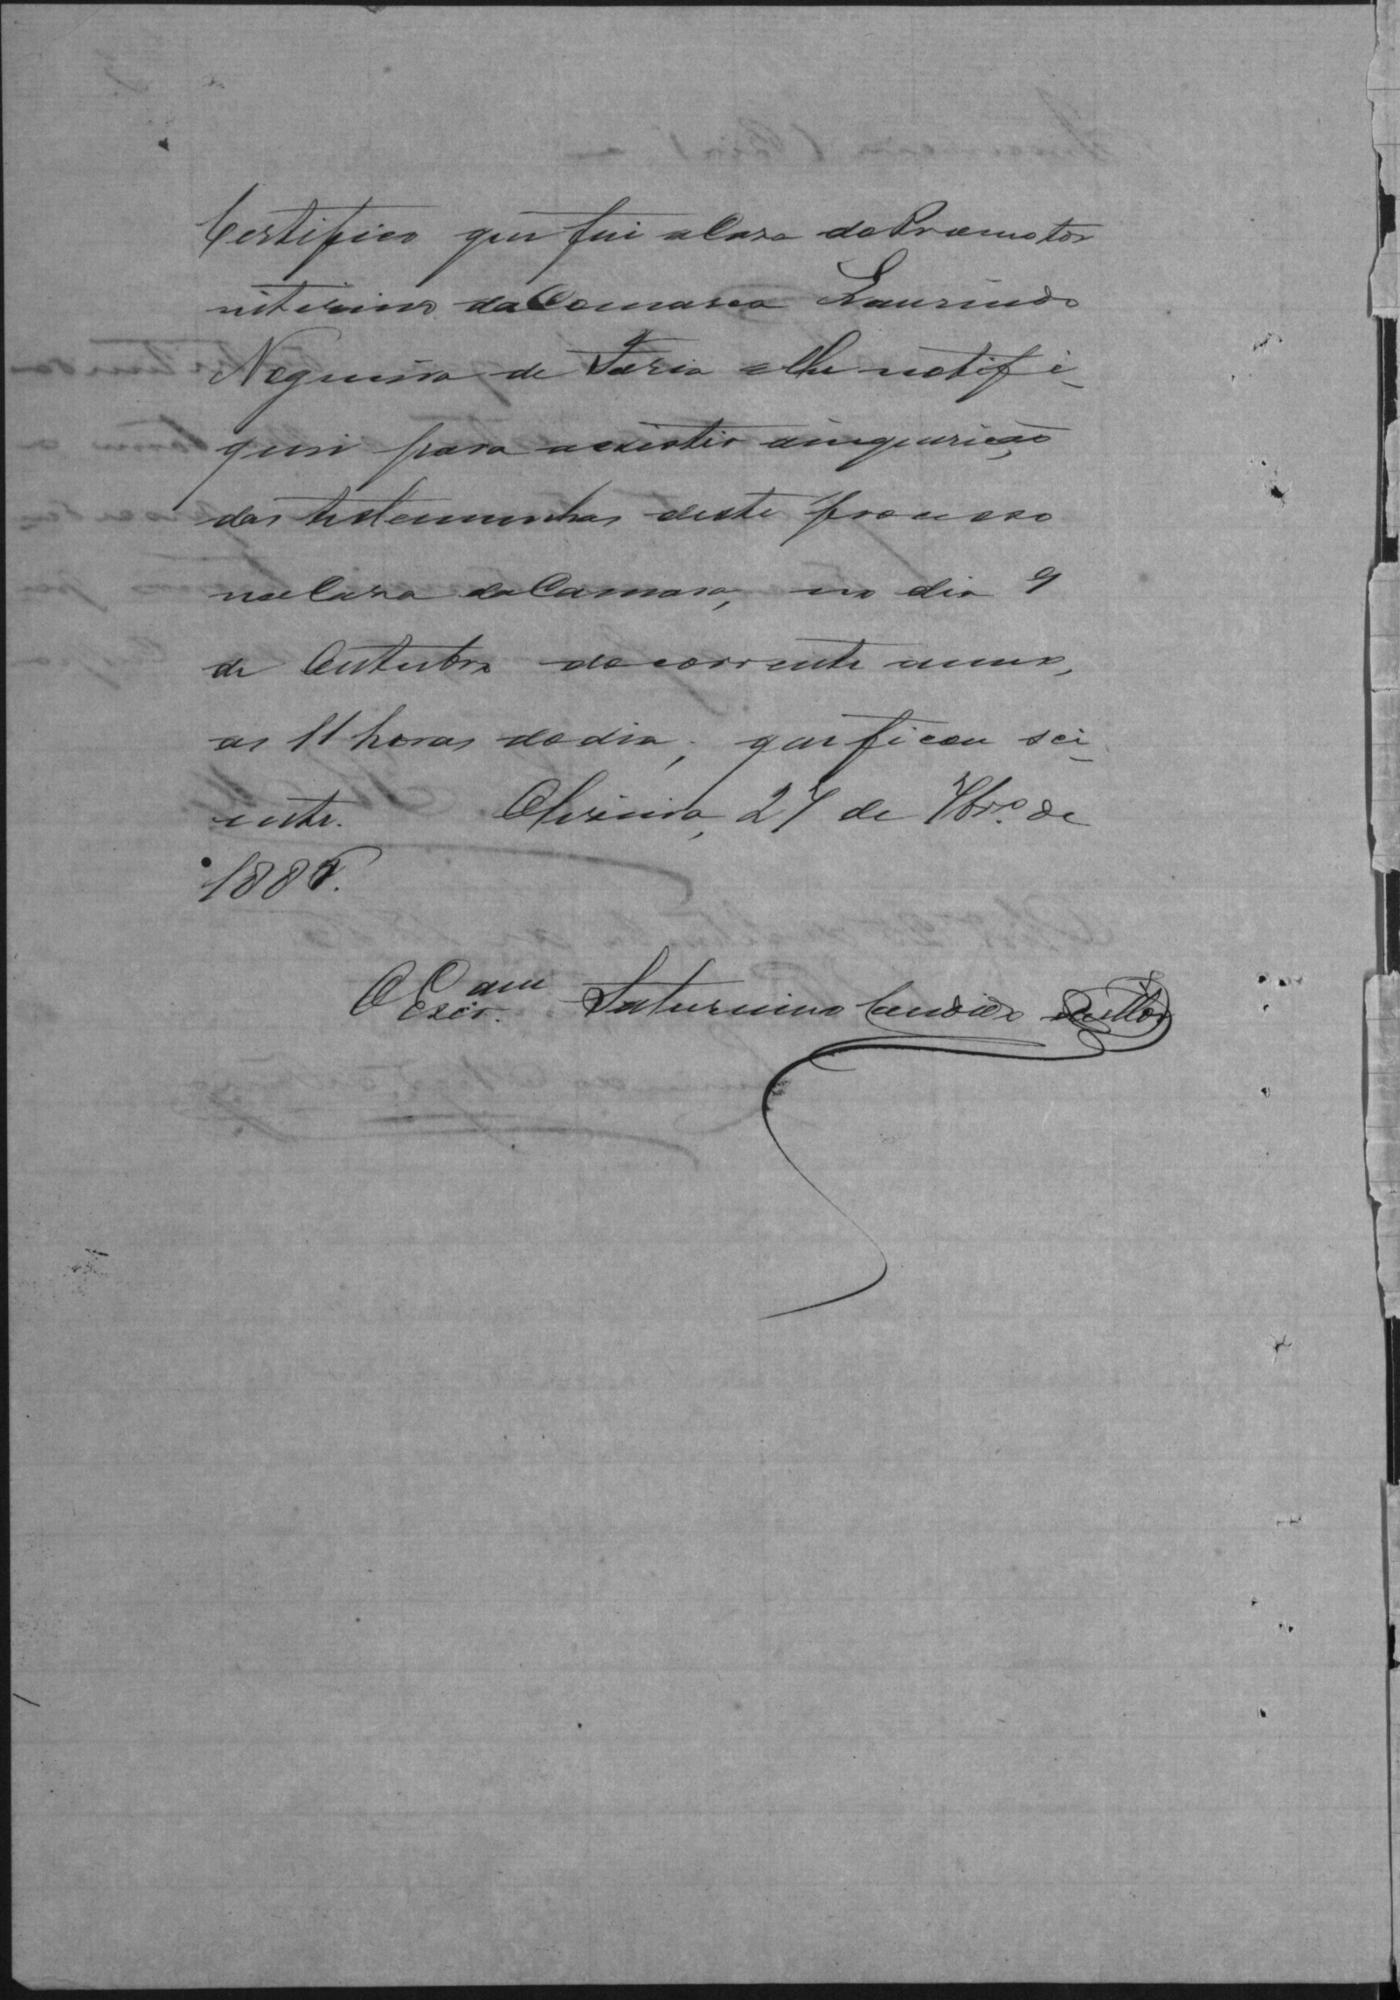 Certifico que fui a Casa do Promotor
interino da Comarca Laurindo
Nogueira de Faria e lhe notifi-
quei para assistir a inquirição
das testemunhas deste processo
na Casa da Camara, no dia 9
de Outubro do corrente anno,
as 11 horas do dia, que ficou sci-
ente. 27 de 7bro. de
188
O Escr.am Saturnino Candido